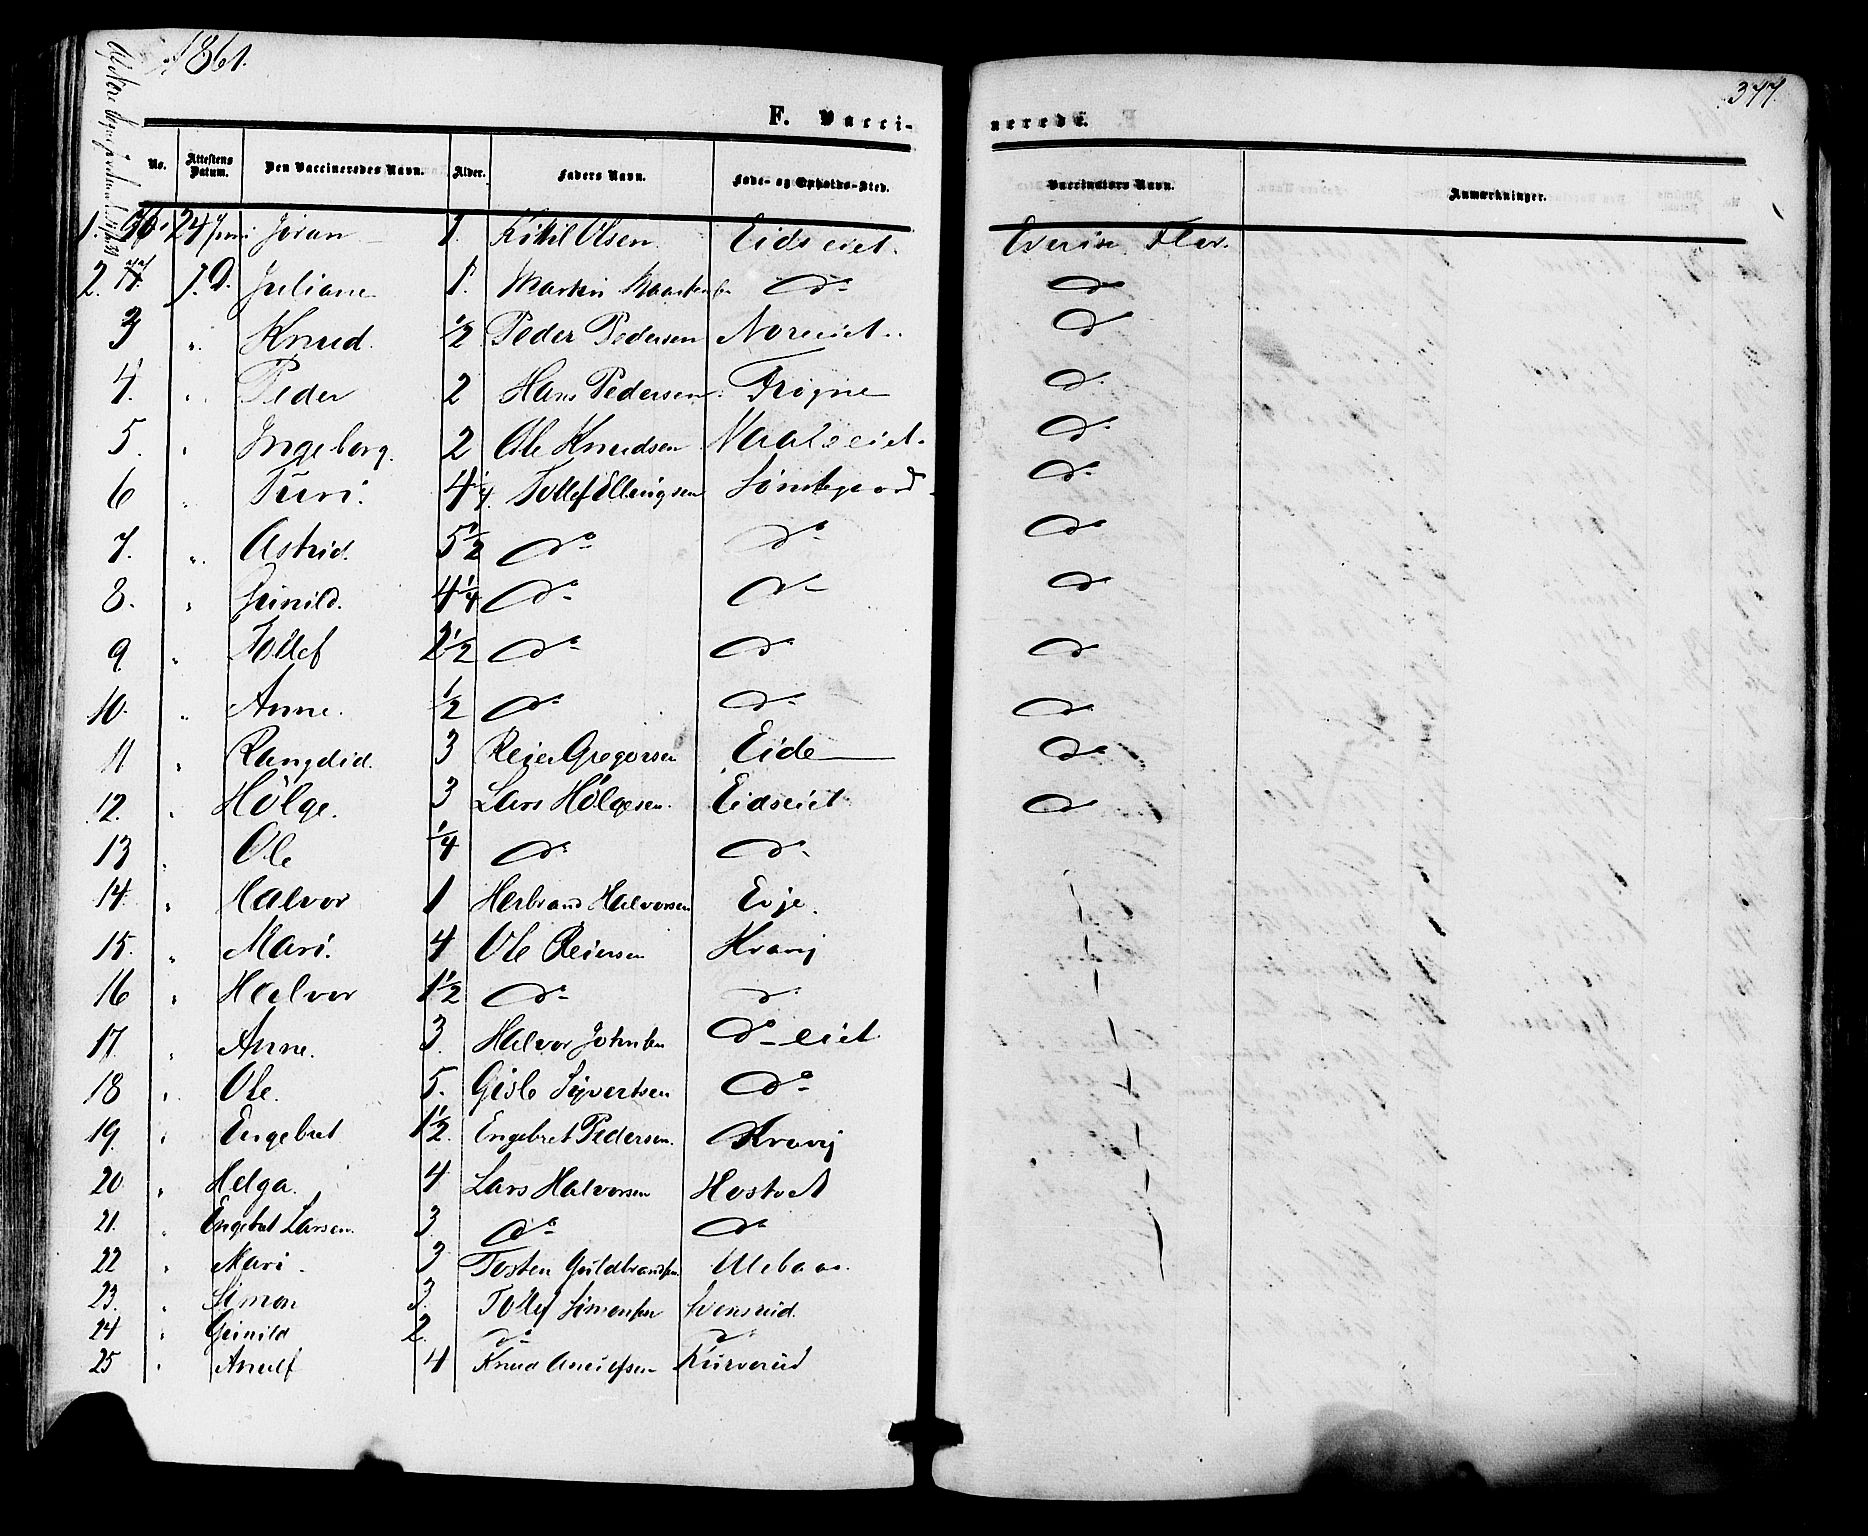 1861.
377.
F. Vacci-
nerede.
No. Attestens Datum. Den Vaccineredes Navn. Alder. Faders Navn. Føde- og Opholds-Sted. Vaccinators Navn. Anmærkninger.
1. 24 Juni Jøran 1. Kittil Olsen Eidseiet. Flor.
2. J. D. Juliane 1. Martin do do
3 " Knud. 1/2 Peder Pedersen Noreeiet. do
4. " Peder 2 Hans Pedersen Frogne do
5. " Ingeborg. 2 Ole Knudsen do
6 " Turi. 4 1/4. Tollef Ellingsen do
7. " Astrid. 5 1/2 do do do
8. " Gunild. 4 1/4 do do do
9 " Tollef 2 1/2 do do do
10. " Anne. 1/2 do do do
11 " Rangdid. 3 Reier Gregersen Eide do
12. " Hølge. 3 Lars Hølgesen. Eidseiet do
13 " Ole 1/4 do do
14. " Halvor 1 Herbrand Halvorsen Evje.
15. " Mari. 4 Ole Reiersen Kravij
16 " Halvor 1 1/2 do do
17. " Anne. 3. Halvor Johnsen do eiet
18 " Ole. 5. Gisle Syvertsen do
19. " Engebret 1 1/2. Engebret Pedersen. Kravij
20 " Helga. 4 Lars Halvorsen Hostvet
21. " Engebret Larsen. 3. do do
22 " Mari 3 Tosten Guldbrandsen. Ulebaas.
23. " Simon 3. Tollef Simonsen Svensrud.
24 " Gunild 2. do do
25 " Anulf 4 Knud Anulfsen